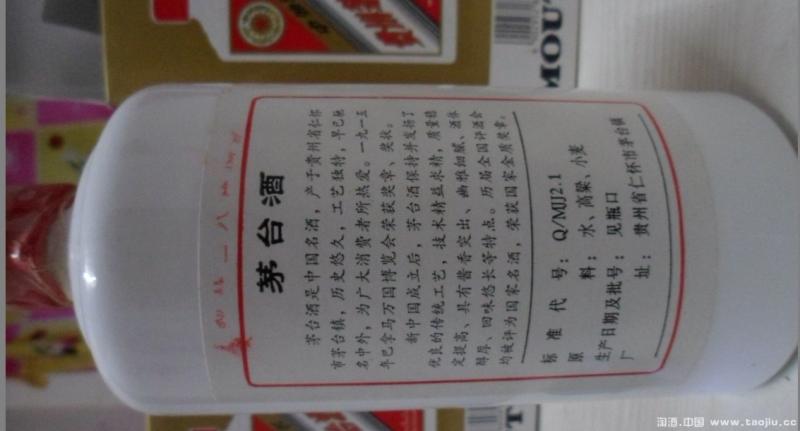 茅台酒
茅台酒是中国名酒，产于贵州省仁怀
市茅台镇，历史悠久，工艺独特，早已驰
名中外，为广大消费者所热爱。一九一五
年巴拿马万国博览会荣获奖章、奖状。
新中国成立后，茅台酒保持并发扬了
优良的传统工艺，技术精益求精，质量稳
定提高、具有酱香突出、幽雅细腻、酒体
醇厚、回味悠长等特点。历届全国评酒会
均被评为国家名酒，荣获国家金质奖章。
标准代号：Q/MJJ2.1
原料：水、高粱、小麦
生产日期及批号：见瓶口
厂址：贵州省仁怀市茅台镇
MOUT
淘酒.中国 www.taojiu.cc